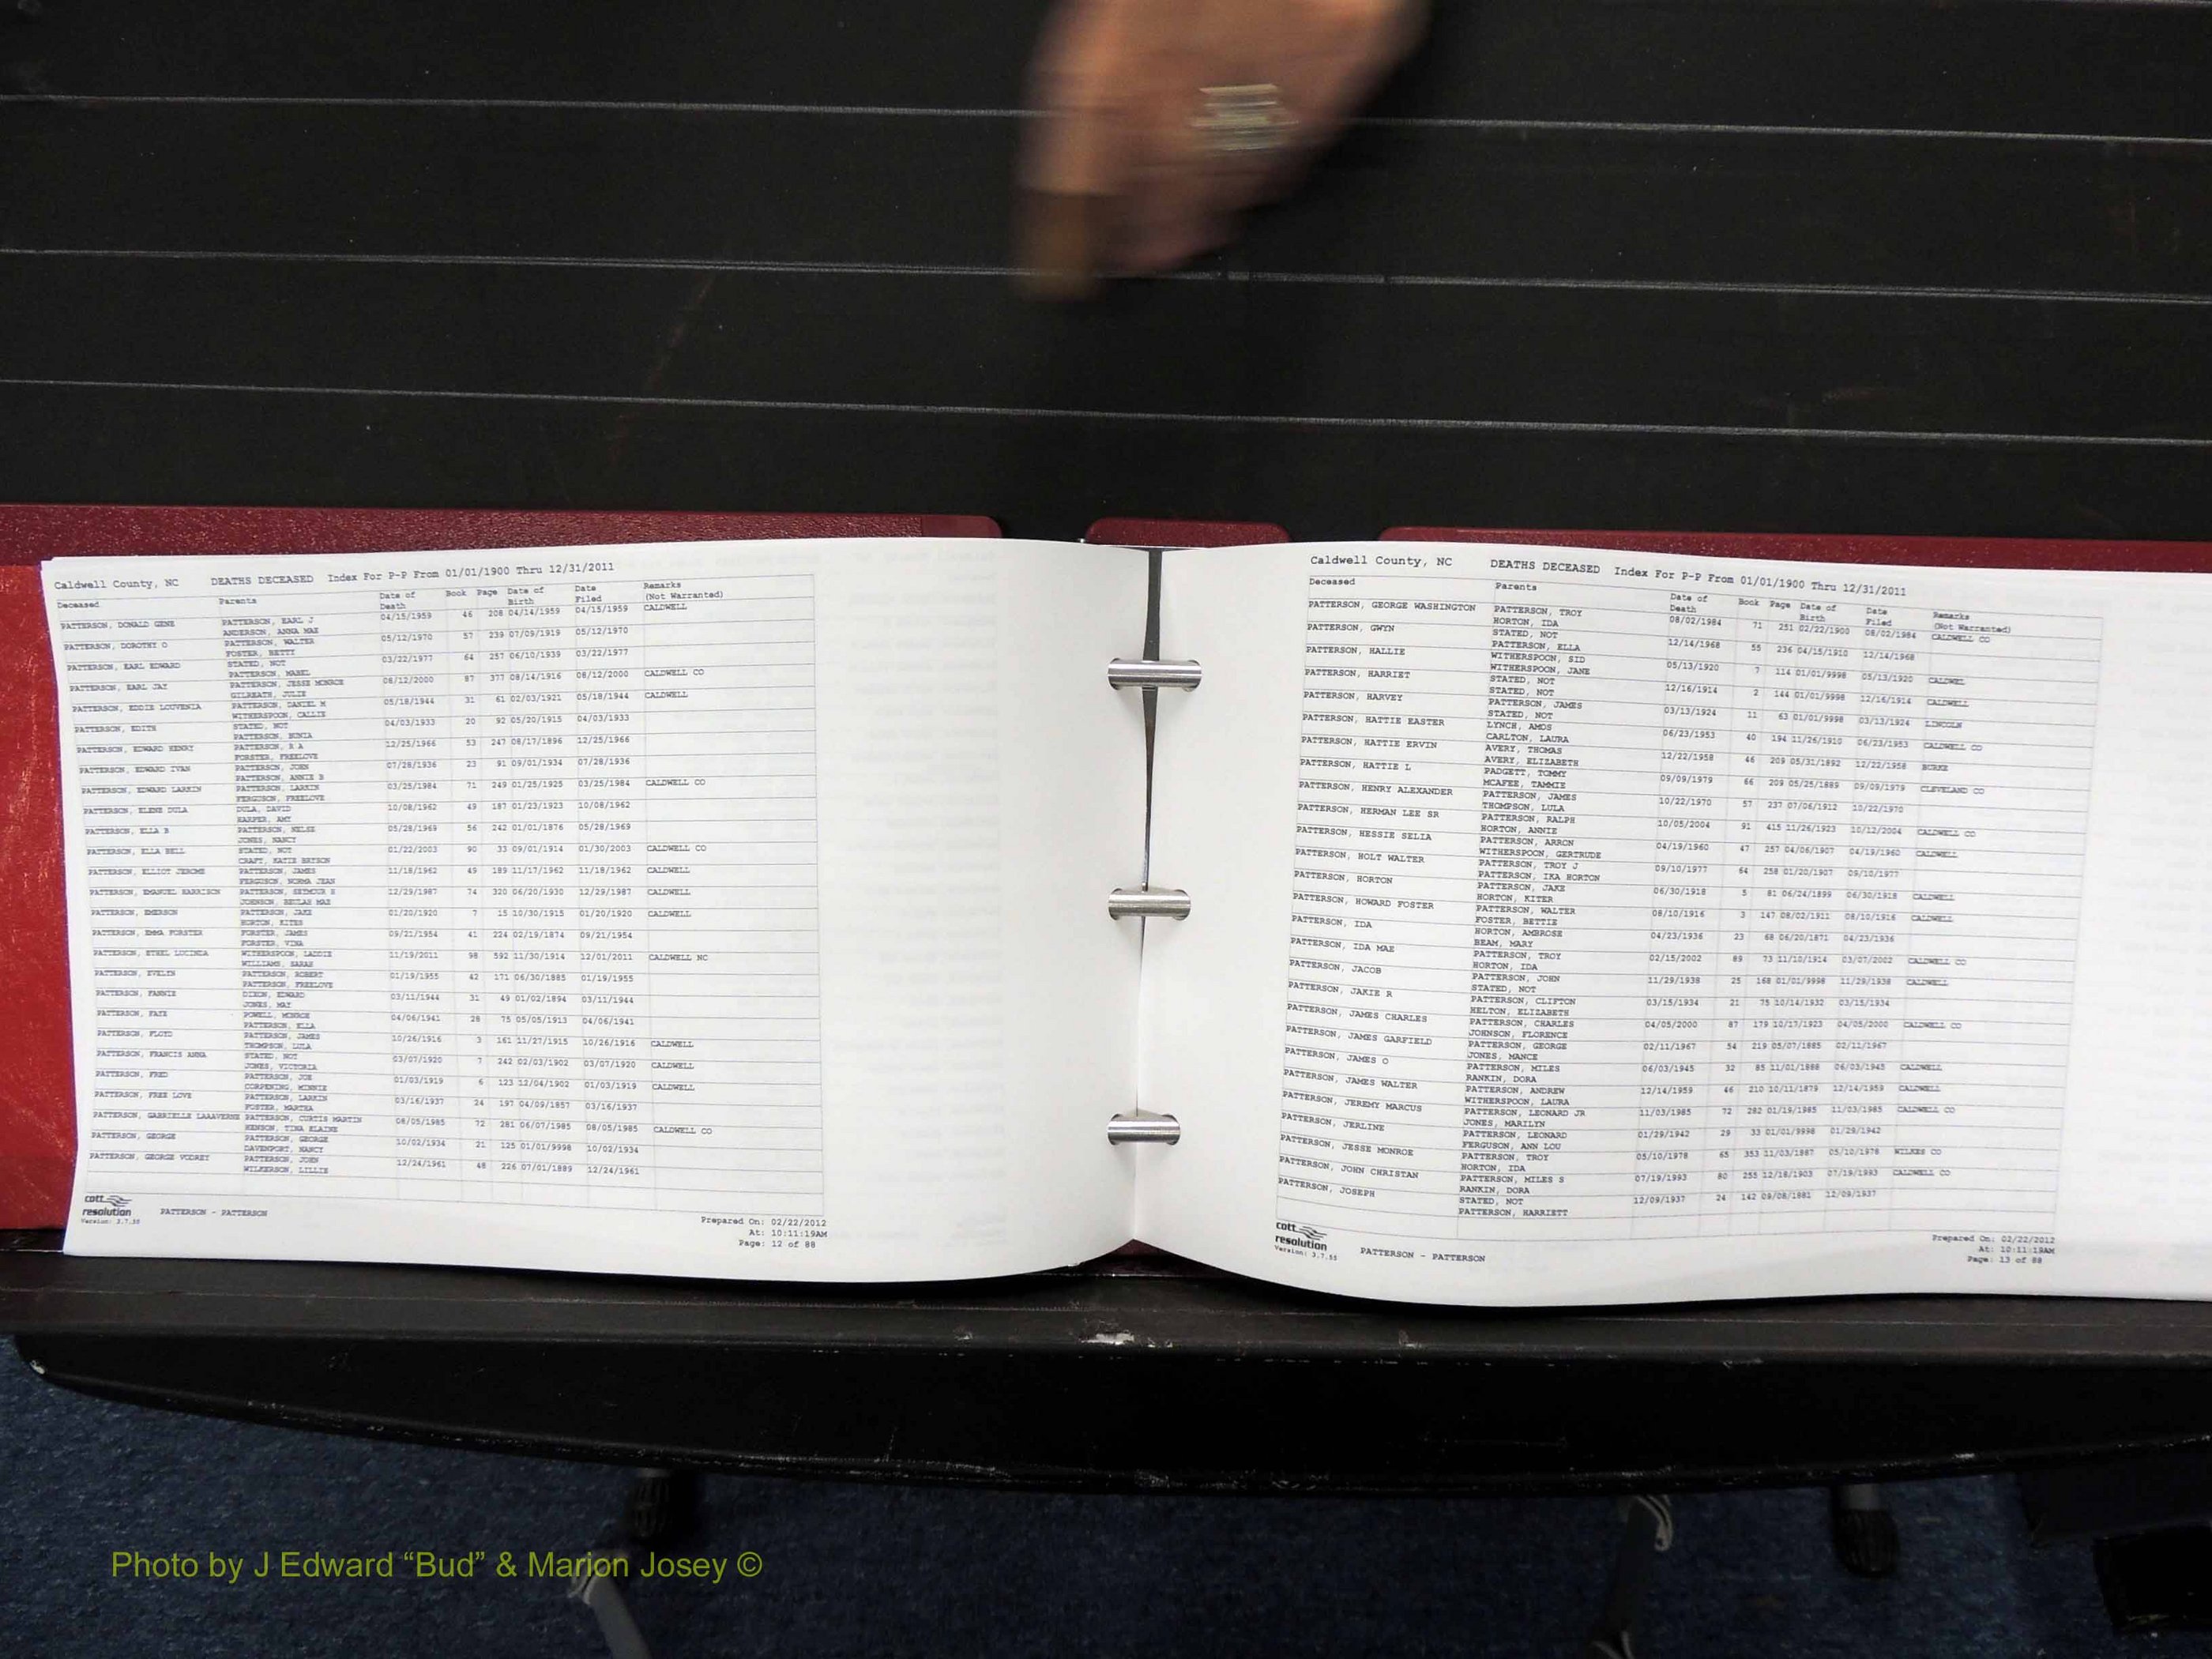 Caldwell County, NC DEATHS DECEASED Index For P-P From 01/01/1900 Thru 12/31/2011
Deceased Parents Date of Death Book Page Date of Birth Date Filed Remarks (Not Warranted)
PATTERSON, DONALD GENE PATTERSON, EARL J 04/15/1959 46 208 04/14/1959 04/15/1959 CALDWELL
ANDERSON, ANNA MAE
PATTERSON, DOROTHY O PATTERSON, WALTER 05/12/1970 57 239 07/09/1919 05/12/1970
FOSTER, BETTY
PATTERSON, EARL EDWARD STATED, NOT 03/22/1977 64 257 06/10/1939 03/22/1977
PATTERSON, MABEL
PATTERSON, EARL JAY PATTERSON, JESSE MONROE 08/12/2000 87 377 08/14/1916 08/12/2000 CALDWELL CO
GILREATH, JULIE
PATTERSON, EDDIE LOUVENIA PATTERSON, DANIEL M 05/18/1944 31 61 02/03/1921 05/18/1944 CALDWELL
WITHERSPOON, CALLIE
PATTERSON, EDITH STATED, NOT 04/03/1933 20 92 05/20/1915 04/03/1933
PATTERSON, EUNIA
PATTERSON, EDWARD HENRY PATTERSON, R A 12/25/1966 53 247 08/17/1896 12/25/1966
FORSTER, FREELOVE
PATTERSON, EDWARD IVAN PATTERSON, JOHN 07/28/1936 23 91 09/01/1934 07/28/1936
PATTERSON, ANNIE B
PATTERSON, EDWARD LARKIN PATTERSON, LARKIN 03/25/1984 71 249 01/25/1925 03/25/1984 CALDWELL CO
FERGUSON, FREELOVE
PATTERSON, ELENE DULA DULA, DAVID 10/08/1962 49 187 01/23/1923 10/08/1962
HARPER, AMY
PATTERSON, ELLA B PATTERSON, NELSE 05/28/1969 56 242 01/01/1876 05/28/1969
JONES, NANCY
PATTERSON, ELLA BELL STATED, NOT 01/22/2003 90 33 09/01/1914 01/30/2003 CALDWELL CO
CRAFT, KATIE BRYSON
PATTERSON, ELLIOT JEROME PATTERSON, JAMES 11/18/1962 49 189 11/17/1962 11/18/1962 CALDWELL
FERGUSON, NORMA JEAN
PATTERSON, EMANUEL HARRISON PATTERSON, SEYMOUR S 12/29/1987 74 320 06/20/1930 12/29/1987 CALDWELL
JOHNSON, BEULAH MAE
PATTERSON, EMERSON PATTERSON, JAKE 01/20/1920 7 15 10/30/1915 01/20/1920 CALDWELL
HORTON, KITES
PATTERSON, EMMA FORSTER FORSTER, JAMES 09/21/1954 41 224 02/19/1874 09/21/1954
FORSTER, VINA
PATTERSON, ETHEL LUCINDA WITHERSPOON, LADDIE 11/19/2011 98 592 11/30/1914 12/01/2011 CALDWELL NC
WILLIAMS, SARAH
PATTERSON, EVELYN PATTERSON, ROBERT 01/19/1955 42 171 06/30/1885 01/19/1955
PATTERSON, FREELOVE
PATTERSON, FANNIE DIXON, EDWARD 03/11/1944 31 49 01/02/1894 03/11/1944
JONES, MAY
PATTERSON, FAYE POWELL, MONROE 04/06/1941 28 75 05/05/1913 04/06/1941
PATTERSON, ELLA
PATTERSON, FLOYD PATTERSON, JAMES 10/26/1916 3 161 11/27/1915 10/26/1916 CALDWELL
THOMPSON, LULA
PATTERSON, FRANCIS ANNA STATED, NOT 03/07/1920 7 242 02/03/1902 03/07/1920 CALDWELL
JONES, VICTORIA
PATTERSON, FRED PATTERSON, JOE 01/03/1919 6 123 12/04/1902 01/03/1919 CALDWELL
CORPENING, MINNIE
PATTERSON, FREE LOVE PATTERSON, LARKIN 03/16/1937 24 197 04/09/1857 03/16/1937
FOSTER, MARTHA
PATTERSON, GABRIELLE LAAAVERNE PATTERSON, CURTIS MARTIN 08/05/1985 72 281 06/07/1985 08/05/1985 CALDWELL CO
HENSON, TINA ELAINE
PATTERSON, GEORGE PATTERSON, GEORGE 10/02/1934 21 125 01/01/9998 10/02/1934
DAVENPORT, NANCY
PATTERSON, GEORGE VODREY PATTERSON, JOHN 12/24/1961 48 226 07/01/1889 12/24/1961
WILKERSON, LILLIE
cott
resolution PATTERSON - PATTERSON
Version: 3.7.55
Prepared On: 02/22/2012
At: 10:11:19AM
Page: 12 of 88
Caldwell County, NC DEATHS DECEASED Index For P-P From 01/01/1900 Thru 12/31/2011
Deceased Parents Date of Death Book Page Date of Birth Date Filed Remarks (Not Warranted)
PATTERSON, GEORGE WASHINGTON PATTERSON, TROY 08/02/1984 71 251 02/22/1900 08/02/1984 CALDWELL CO
HORTON, IDA
PATTERSON, GWYN STATED, NOT 12/14/1968 55 236 04/15/1910 12/14/1968
PATTERSON, ELLA
PATTERSON, HALLIE WITHERSPOON, SID 05/13/1920 7 114 01/01/9998 05/13/1920 CALDWEL
WITHERSPOON, JANE
PATTERSON, HARRIET STATED, NOT 12/16/1914 2 144 01/01/9998 12/16/1914 CALDWELL
STATED, NOT
PATTERSON, HARVEY PATTERSON, JAMES 03/13/1924 11 63 01/01/9998 03/13/1924 LINCOLN
STATED, NOT
PATTERSON, HATTIE EASTER LYNCH, AMOS 06/23/1953 40 194 11/26/1910 06/23/1953 CALDWELL CO
CARLTON, LAURA
PATTERSON, HATTIE ERVIN AVERY, THOMAS 12/22/1958 46 209 05/31/1892 12/22/1958 BURKE
AVERY, ELIZABETH
PATTERSON, HATTIE L PADGETT, TOMMY 09/09/1979 66 209 05/25/1889 09/09/1979 CLEVELAND CO
MCAFEE, TAMMIE
PATTERSON, HENRY ALEXANDER PATTERSON, JAMES 10/22/1970 57 237 07/06/1912 10/22/1970
THOMPSON, LULA
PATTERSON, HERMAN LEE SR PATTERSON, RALPH 10/05/2004 91 415 11/26/1923 10/12/2004 CALDWELL CO
HORTON, ANNIE
PATTERSON, HESSIE SELIA PATTERSON, ARRON 04/19/1960 47 257 04/06/1907 04/19/1960 CALDWELL
WITHERSPOON, GERTRUDE
PATTERSON, HOLT WALTER PATTERSON, TROY J 09/10/1977 64 258 01/20/1907 09/10/1977
PATTERSON, IKA HORTON
PATTERSON, HORTON PATTERSON, JAKE 06/30/1918 5 81 06/24/1899 06/30/1918 CALDWELL
HORTON, KITER
PATTERSON, HOWARD FOSTER PATTERSON, WALTER 08/10/1916 3 147 08/02/1911 08/10/1916 CALDWELL
FOSTER, BETTIE
PATTERSON, IDA HORTON, AMBROSE 04/23/1936 23 68 06/20/1871 04/23/1936
BEAM, MARY
PATTERSON, IDA MAE PATTERSON, TROY 02/15/2002 89 73 11/10/1914 03/07/2002 CALDWELL CO
HORTON, IDA
PATTERSON, JACOB PATTERSON, JOHN 11/29/1938 25 168 01/01/9998 11/29/1938 CALDWELL
STATED, NOT
PATTERSON, JAKIE R PATTERSON, CLIFTON 03/15/1934 21 75 10/14/1932 03/15/1934
HELTON, ELIZABETH
PATTERSON, JAMES CHARLES PATTERSON, CHARLES 04/05/2000 87 179 10/17/1923 04/05/2000 CALDWELL CO
JOHNSON, FLORENCE
PATTERSON, JAMES GARFIELD PATTERSON, GEORGE 02/11/1967 54 219 05/07/1885 02/11/1967
JONES, MANCE
PATTERSON, JAMES O PATTERSON, MILES 06/03/1945 32 85 11/01/1888 06/03/1945 CALDWELL
RANKIN, DORA
PATTERSON, JAMES WALTER PATTERSON, ANDREW 12/14/1959 46 210 10/11/1879 12/14/1959 CALDWELL
WITHERSPOON, LAURA
PATTERSON, JEREMY MARCUS PATTERSON, LEONARD JR 11/03/1985 72 282 01/19/1985 11/03/1985 CALDWELL CO
JONES, MARILYN
PATTERSON, JERLINE PATTERSON, LEONARD 01/29/1942 29 33 01/01/9998 01/29/1942
FERGUSON, ANN LOU
PATTERSON, JESSE MONROE PATTERSON, TROY 05/10/1978 65 353 11/03/1887 05/10/1978 WILKES CO
HORTON, IDA
PATTERSON, JOHN CHRISTAN PATTERSON, MILES S 07/19/1993 80 255 12/18/1903 07/19/1993 CALDWELL CO
RANKIN, DORA
PATTERSON, JOSEPH STATED, NOT 12/09/1937 24 142 09/08/1881 12/09/1937
PATTERSON, HARRIETT
cott
resolution PATTERSON - PATTERSON
Version: 3.7.55
Prepared On: 02/22/2012
At: 10:11:19AM
Page: 13 of 88
Photo by J Edward “Bud” & Marion Josey ©